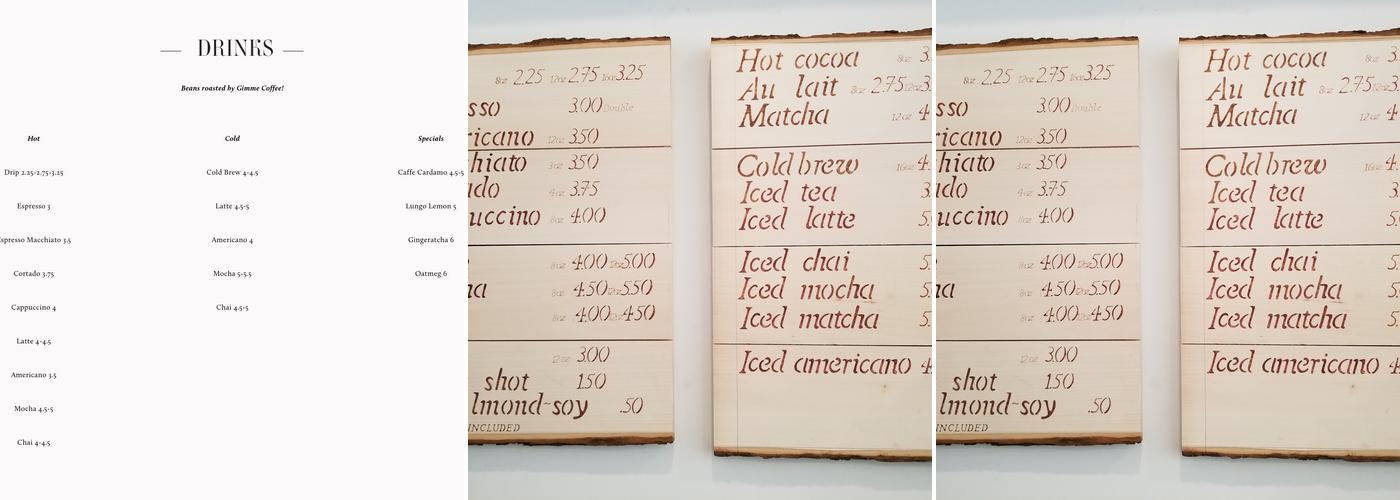 DRINKS
Beans roasted by Gimme Coffee!
Hot
Drip 2.25-2.75-3.25
Espresso 3
spresso Macchiato 3.5
Cortado 3.75
Cappuccino 4
Latte 4-4.5
Americano 3.5
Mocha 4.5-5
Chai 4-4.5
Cold
Cold Brew 4-4.5
Latte 4.5-5
Americano 4
Mocha 5-5.5
Chai 4.5-5
Specials
Caffe Cardamo 4.5-5
Lungo Lemon 5
Gingeratcha 6
Oatmeg 6
8oz 2.25 12oz 2.75 16oz 3.25
sso 3.00 Double
ricano 12oz 3.50
hiato 3oz 3.50
ado 4oz 3.75
uccino 8oz 4.00
8oz 4.00 12oz 5.00
ha 8oz 4.50 12oz 5.50
8oz 4.00 12oz 4.50
12oz 3.00
shot 1.50
lmond-soy .50
INCLUDED
Hot cocoa 8oz 3.
Au lait 8oz 2.75 12oz 3.
Matcha 12oz 4
Cold brew 16oz 4.
Iced tea 3.
Iced latte 5.
Iced chai 5.
Iced mocha 5.
Iced matcha 5.
Iced americano 4
8oz 2.25 12oz 2.75 16oz 3.25
sso 3.00 Double
ricano 12oz 3.50
hiato 3oz 3.50
ado 4oz 3.75
uccino 8oz 4.00
8oz 4.00 12oz 5.00
ha 8oz 4.50 12oz 5.50
8oz 4.00 12oz 4.50
12oz 3.00
shot 1.50
lmond-soy .50
INCLUDED
Hot cocoa 8oz 3.
Au lait 8oz 2.75 12oz 3.
Matcha 12oz 4
Cold brew 16oz 4.
Iced tea 3.
Iced latte 5.
Iced chai 5.
Iced mocha 5.
Iced matcha 5.
Iced americano 4